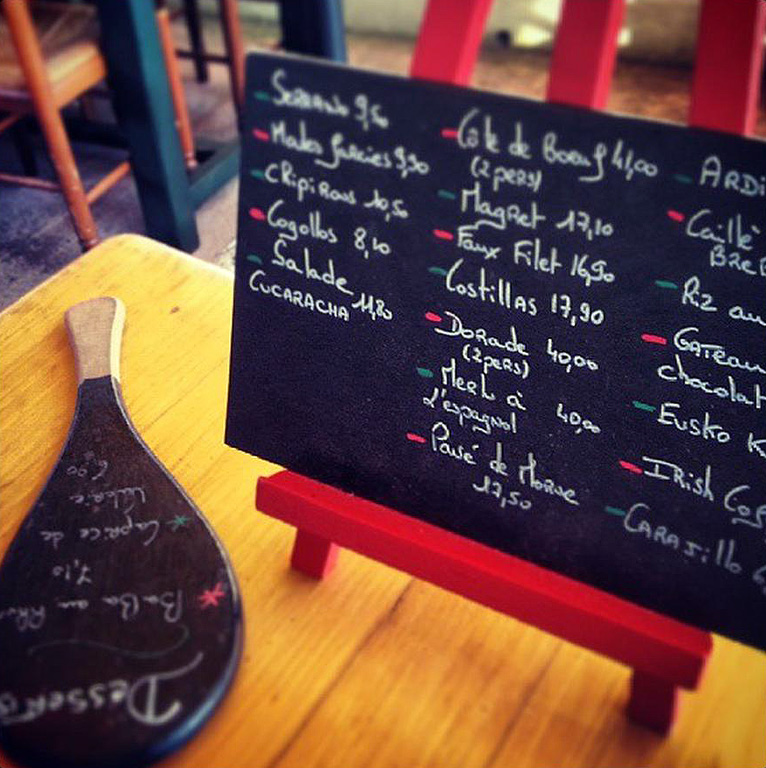 Serrano 9,50
Moules farcies 9,90
Chipirons 10,50
Cogollos 8,10
Salade
Cucaracha 11,80
Côte de Boeuf 41,00
(2 pers)
Magret 17,10
Faux Filet 16,90
Costillas 17,90
Dorade 40,00
(2 pers)
Merlu à
l'espagnol 40,00
Pavé de Morue
17,50
Ardi
Caillé
Breb
Riz au
Gateau
chocolat
Eusko K
Irish Cof
Carajillo
Desserts
BaBa au Rhu
7,10
Caprice de